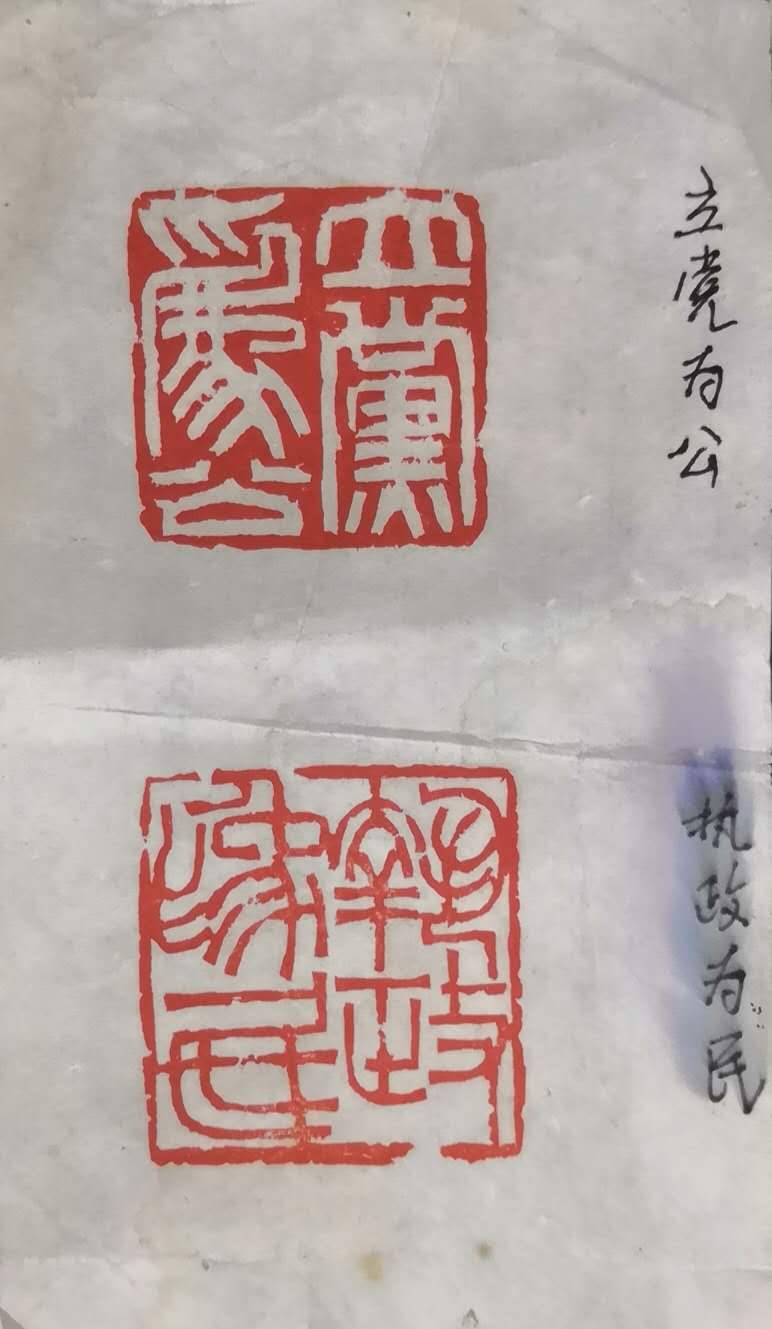 立党为公
立黨爲公
执政为民
執政爲民